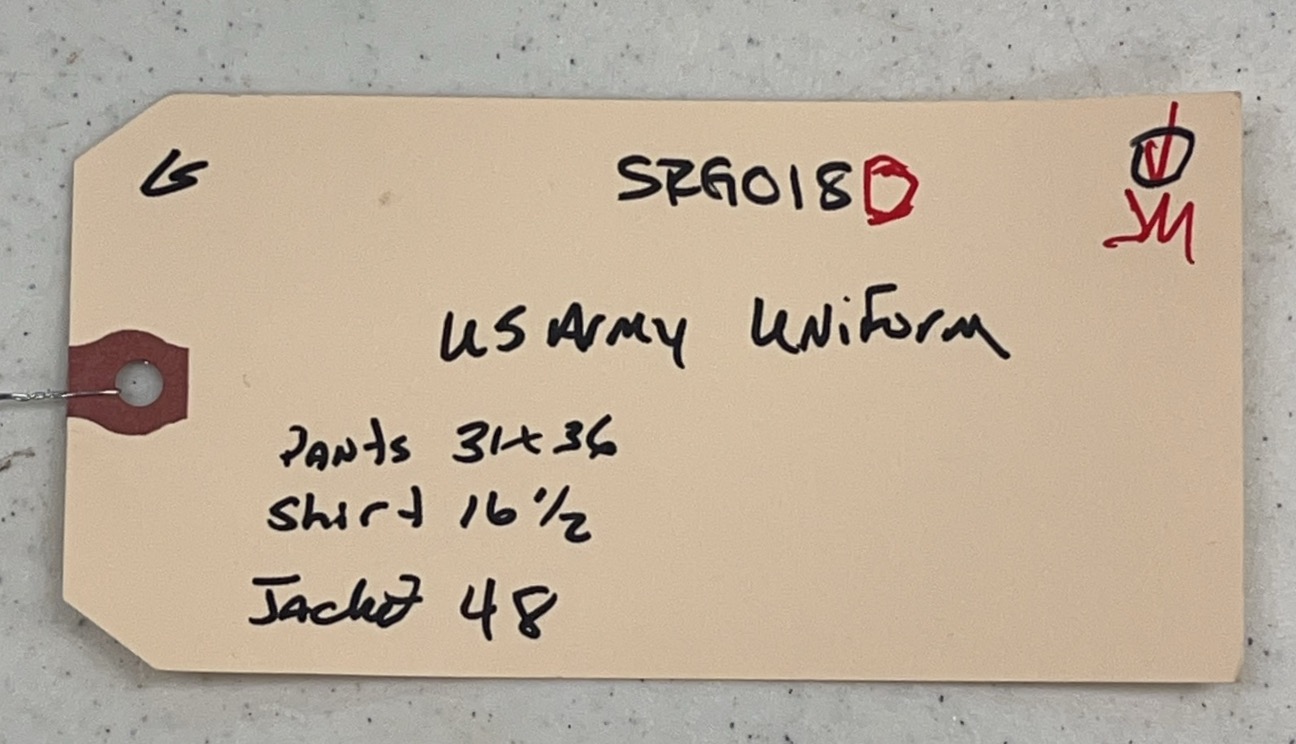 LS
SRG018D
JM
US Army Uniform
Pants 31x36
Shirt 16 1/2
Jacket 48